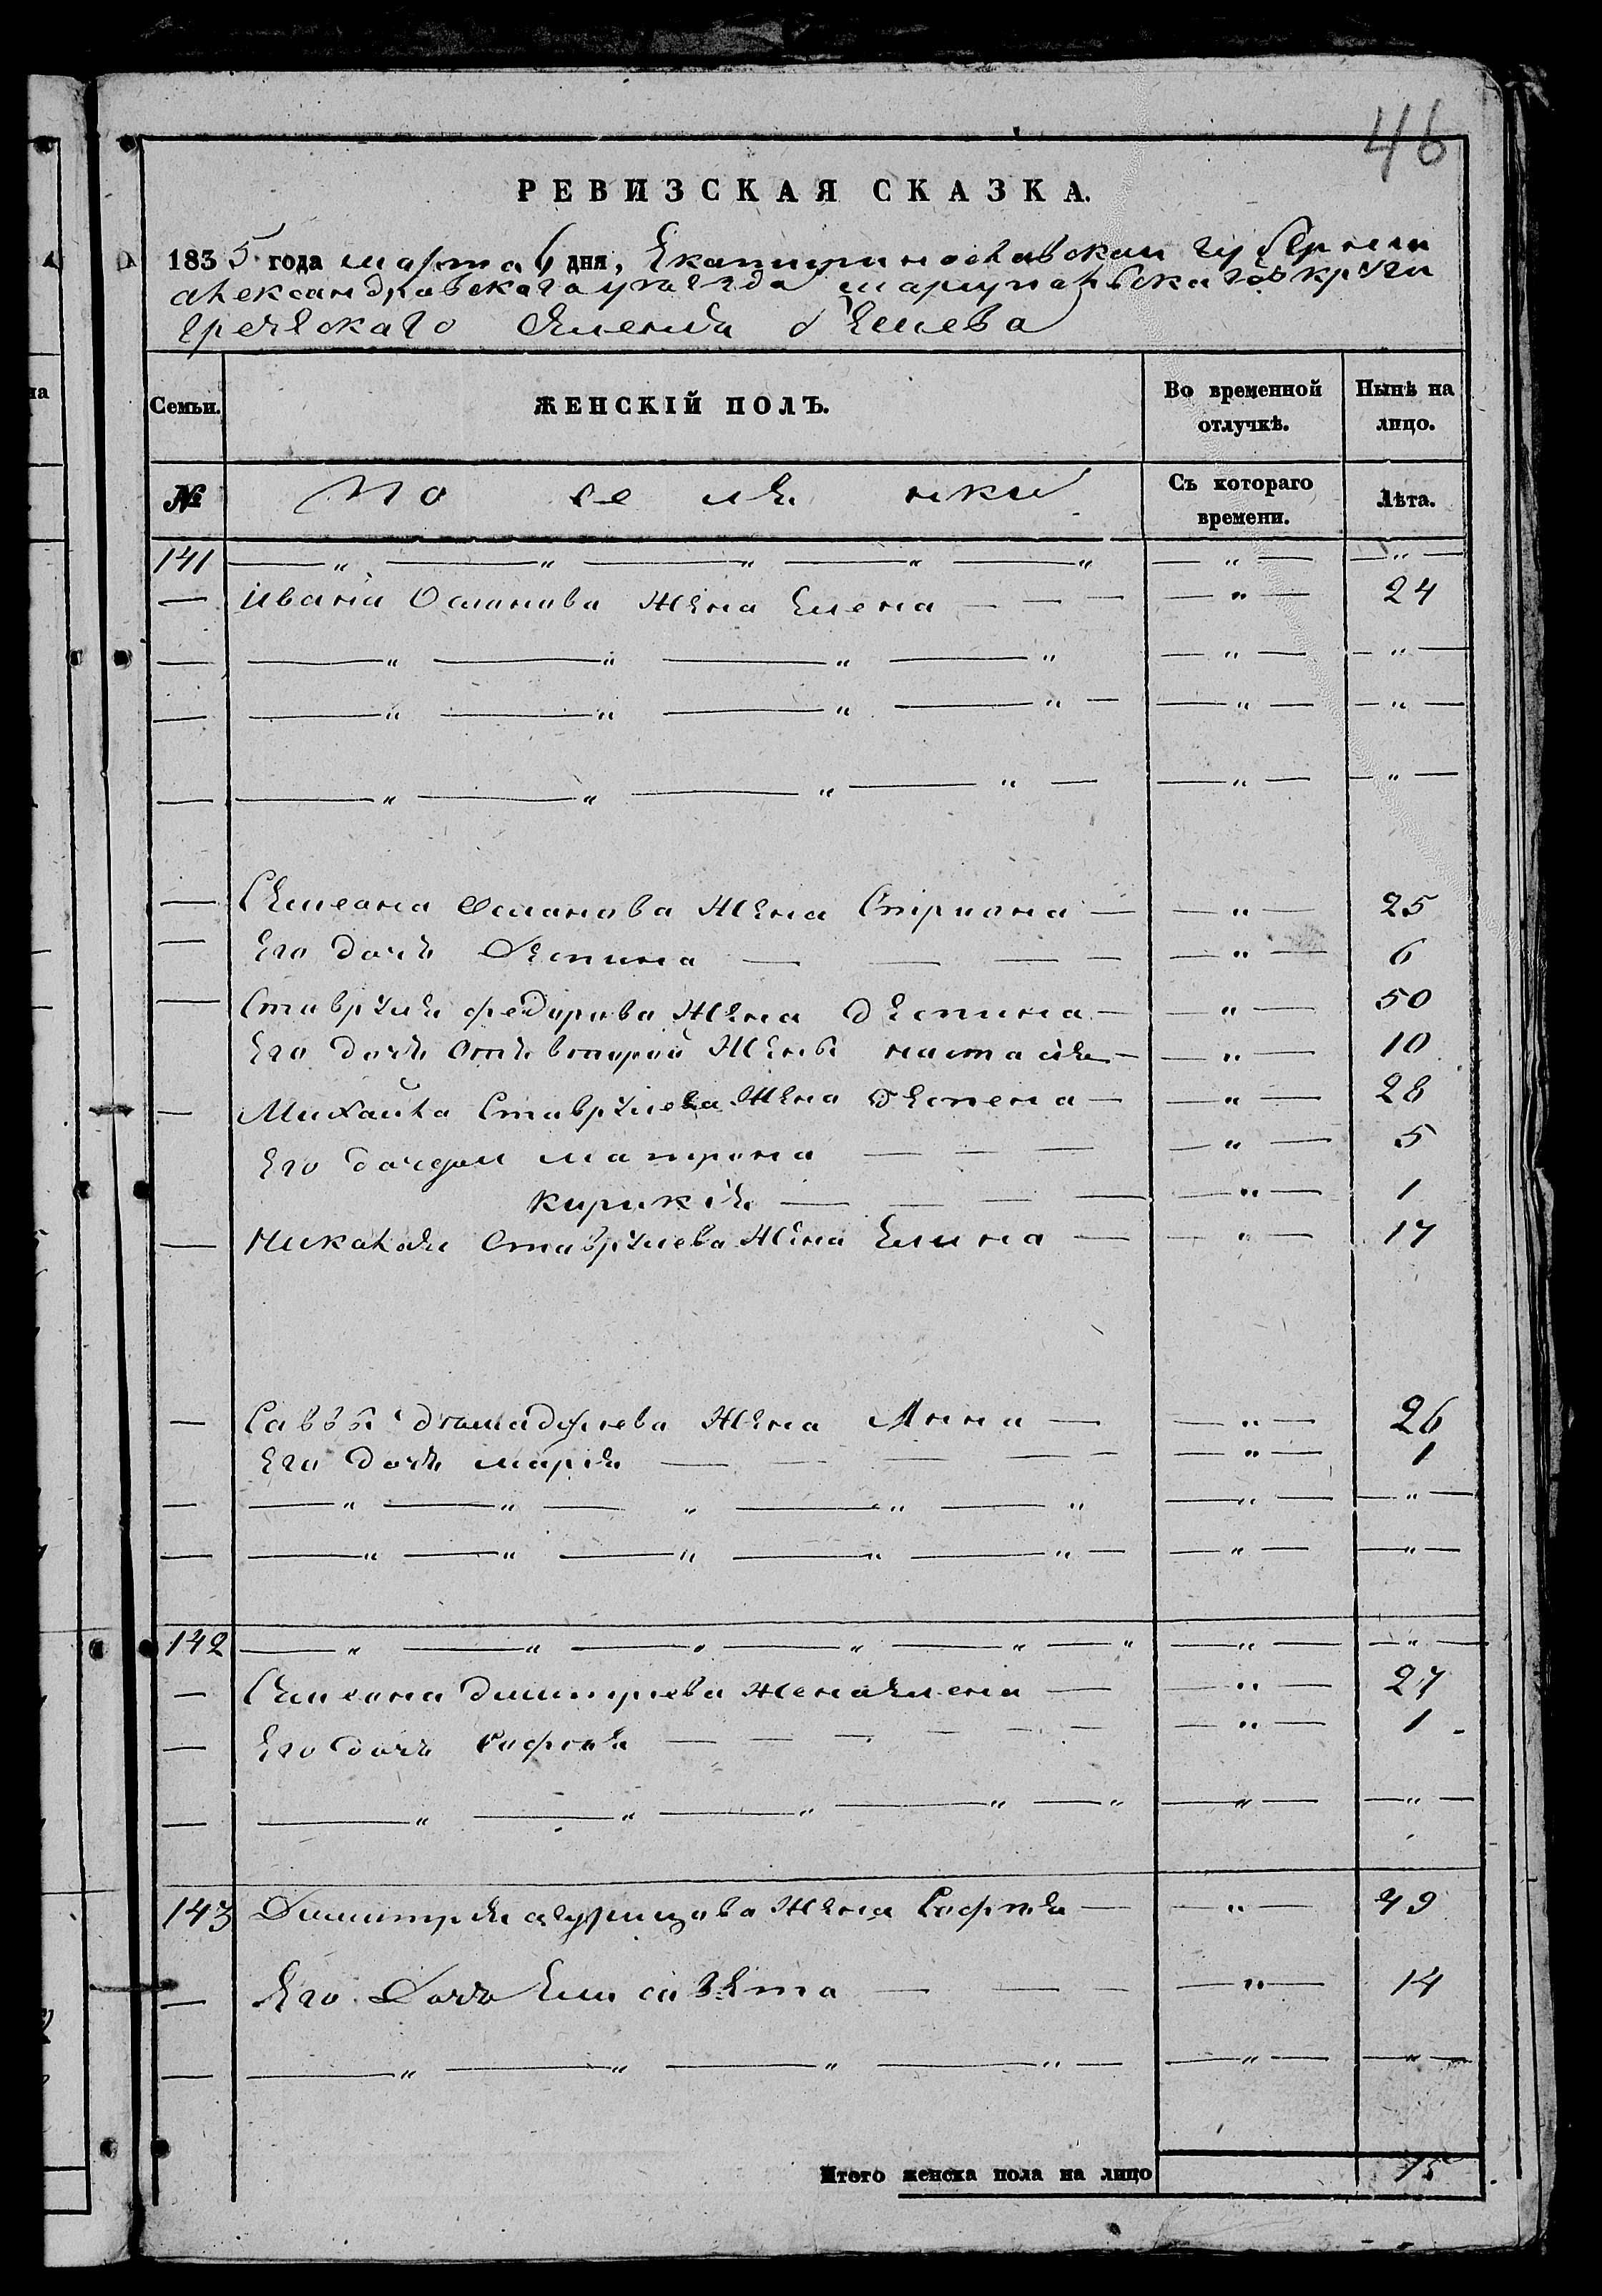 46
РЕВИЗСКАЯ СКАЗКА.
1835 года марта 6 дня, Екатиринославскои губернии
александровскаго уѣзда мариупольскаго округи
греческаго
Семьи. ЖЕНСКІЙ ПОЛЪ. Во временной отлучкѣ. Нынѣ на лицо.
№ По се ля нки Съ котораго времени. Лѣта.
141 — " — " — " — " — " — " — — " —
— Ивана Османова жена Елена — — — — " — 24
— — " — " — " — " — " — — " —
— — " — " — " — " — — " — — " —
— — " — " — " — " — — " — — " —
— Семеона Османова жена Стириона — — " — 25
— Его дочь Деспина — — — — — " — 6
— Ставрїия федорова жена деспина — — " — 50
Его дочь отъ второй жены настасія — — " — 10
— Михайла Ставрїиева жена деспена — — " — 28
Его дочери матрона — — — — " — 5
кирикія — — — — — " — 1
— Николая Ставрїиева жена Елина — — " — 17
— Саввы жена Анна — — " — 26
Его дочь марія — — — — — — " — 1
— — " — " — " — " — " — " — — " —
— — " — " — " — " — " — — " — — " —
142 — " — " — " — " — " — " — " — — " —
— Семеона дмитриева жена елена — — " — 27
— Его дочь Софоия — — — — — — — " — 1
— — " — " — " — " — " — " — — " —
143 Димитрія жена Софія — — " — 49
— Его Дочь Елисавета — — — — " — 14
— — " — " — " — " — — " — — " —
Итого женска пола на лицо 15